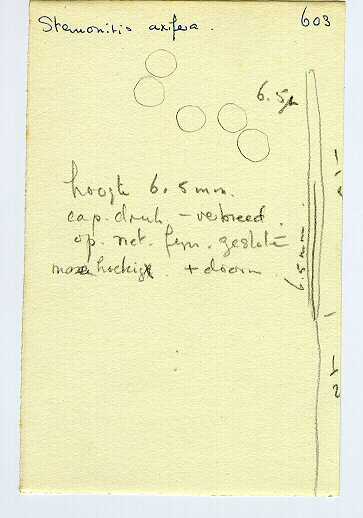 Stemonitis axifera.
603
6.5µ
hoogte 6.5 mm.
cap. druk - verbreed.
op. net. fijn. gesloten
hoekig + doorn
6.5 mm